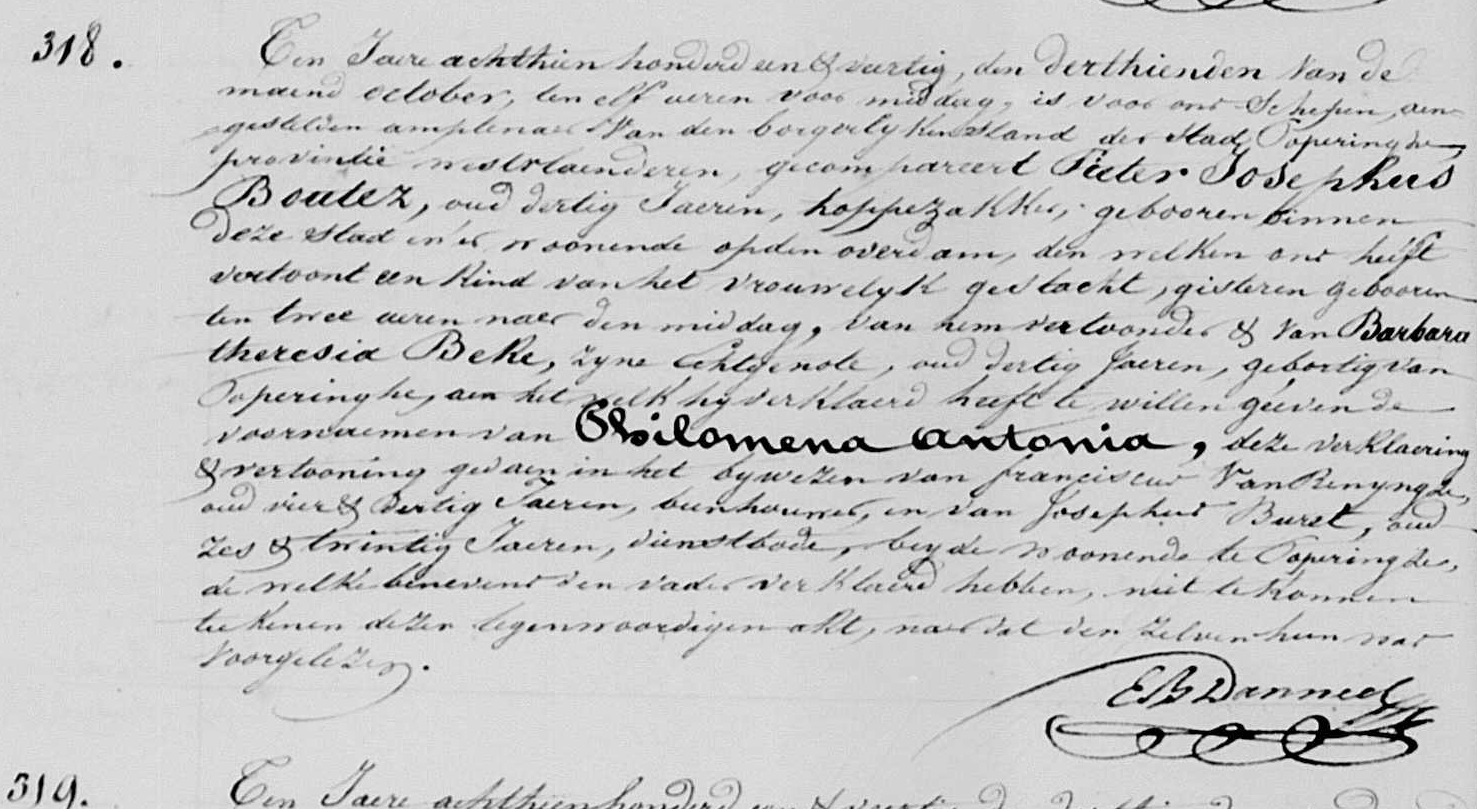 318.
Ten Jaere achthien honderd een & veertig, den derthienden van de
maend october, ten elf ueren voor middag, is voor ons Schepen, aen-
gestelden amptenaer van den borgerlyken stand der stad Poperinghe
provintie westvlaenderen, gecompareert Pieter Josephus
Boutez, oud dertig Jaeren, hoppezakker, gebooren binnen
deze stad en er woonende op den overdam, den welken ons heeft
vertoont een kind van het vrouwelyk geslacht, gisteren gebooren
ten twee ueren naer den middag, van hem vertoonder & van Barbara
theresia Beke, zyne Echtgenote, oud dertig Jaeren, gebortig van
Poperinghe, aen het welk hy verklaerd heeft te willen geeven de
voornaemen van Philomena antonia, deze verklaering
& vertooning gedaen in het bywezen van franciscus Van Renynghe,
oud vier & dertig Jaeren, beenhouwer, en van Josephus Buret, oud
zes & twintig Jaeren, dienstbode, beyde woonende te Poperinghe,
de welke benevens den vader verklaerd hebben, niet te konnen
teekenen dezen tegenwoordigen akt, naer dat den zelven hun was
voorgelezen.
319.
Ten Jaere achthien honderd een & veertig